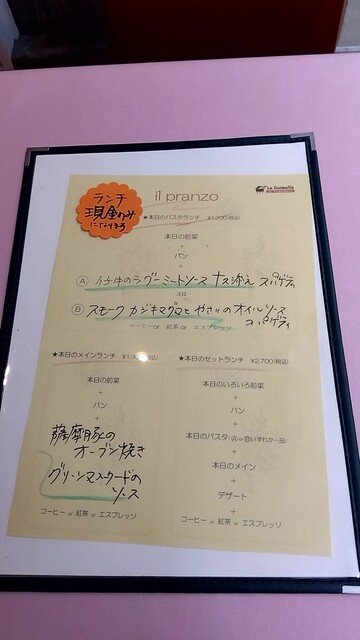 ランチ
現金のみ
になります
il pranzo
La Coccinella
★本日のパスタランチ ¥1,200(税込)
本日の前菜
+
パン
+
Ⓐ 仔牛のラグーミートソース ナス添え スパゲティ
又は
Ⓑ スモークカジキマグロと やさいのオイルソース
スパゲティ
コーヒーor 紅茶 or エスプレッソ
★本日のメインランチ
本日の前菜
+
パン
+
薩摩豚の
オーブン焼き
グリーンマスタードの
ソース
コーヒー or 紅茶 or エスプレッソ
★本日のセットランチ ¥2,700(税込)
本日のいろいろ前菜
+
パン
+
本日のパスタ(Ⓐor Ⓑいずれか一品)
+
本日のメイン
+
デザート
+
コーヒー or 紅茶 or エスプレッソ